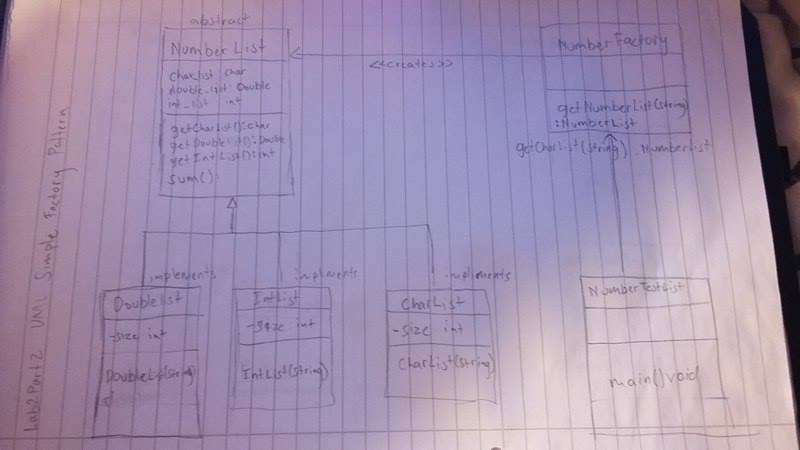 Lab2Part2 UML Simple Factory Pattern
abstract
NumberList
Charlist char
double_list: Double
int_list int
getCharList():char
getDoubleList():Double
getIntList():int
sum()
<<creates>>
NumberFactory
getNumberList(string)
:NumberList
getCharList(string) . Numberlist
implements
implments
implements
Doublelist
-size int
DoubleList(string)
IntList
-size int
IntList(string)
CharList
-size int
CharList(string)
NumberTestList
main()void